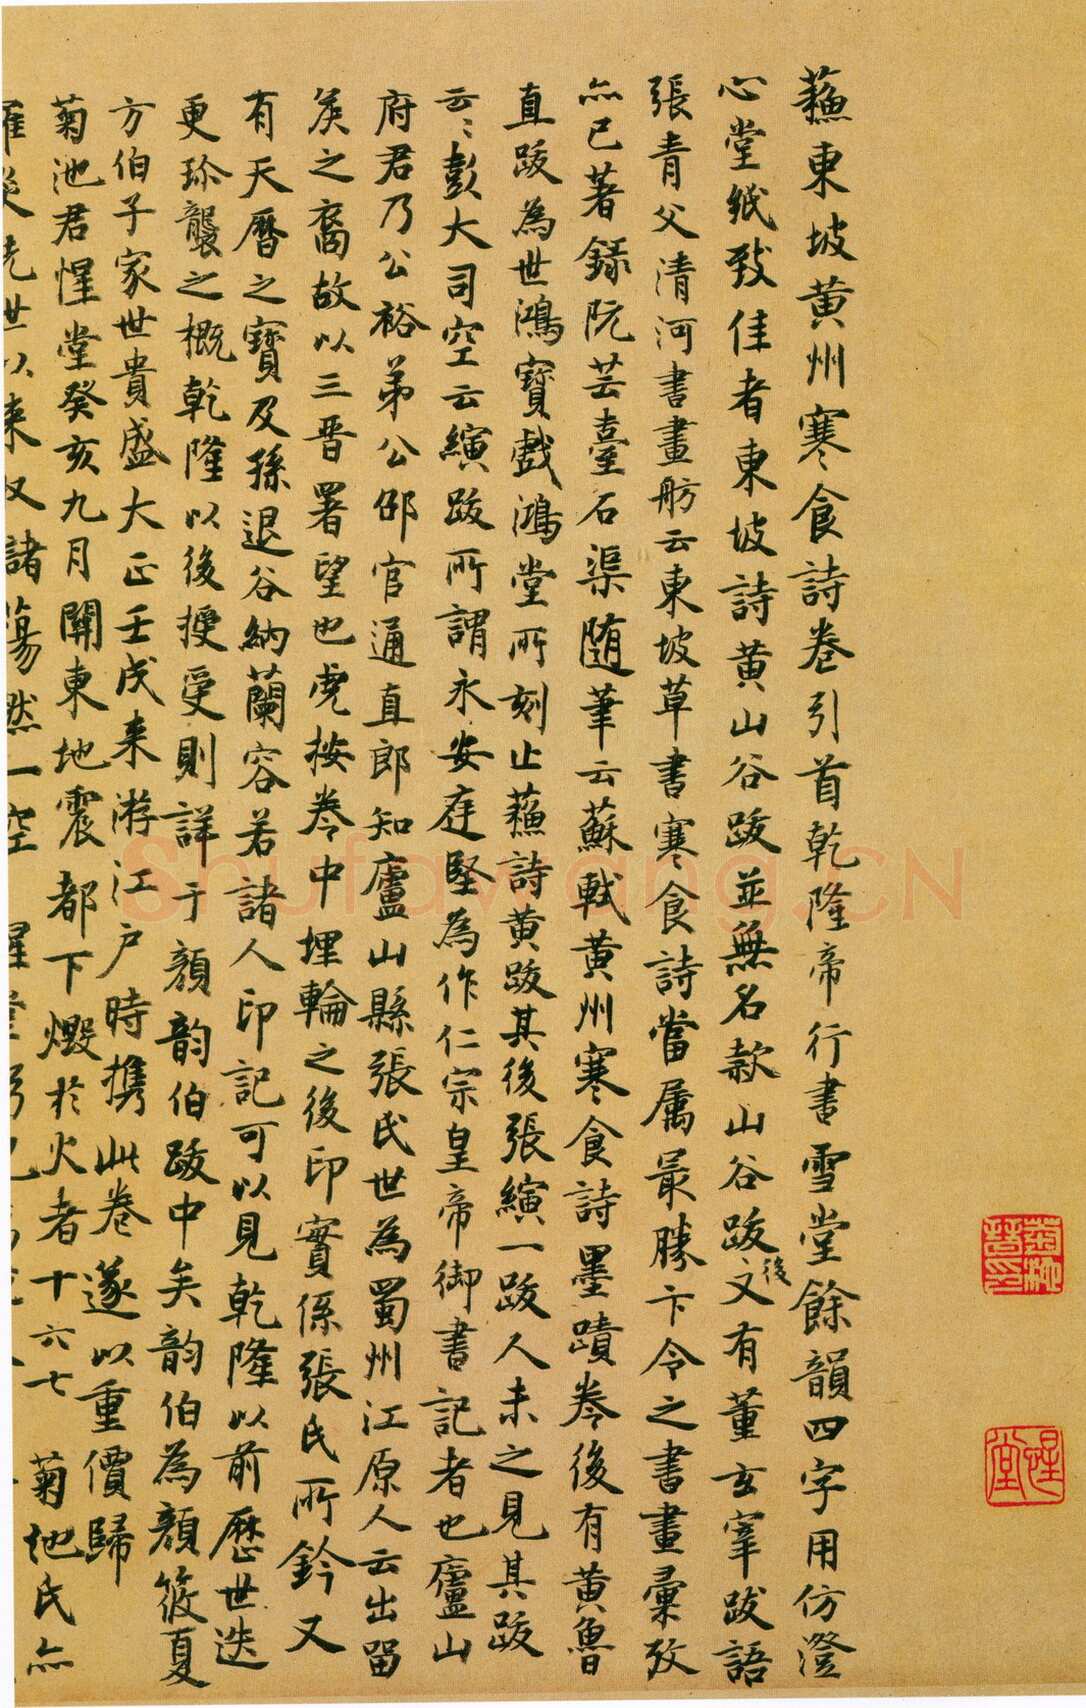 蘓東坡黄州寒食詩卷引首乾隆帝行書雪堂餘韻四字用仿澄
心堂紙致佳者東坡詩黄山谷跋並無名款山谷跋文後有董玄宰跋語
張青父清河書畫舫云東坡草書寒食詩當属最勝卞令之書畫彙攷
亦已著録阮芸臺石渠随筆云蘇軾黄州寒食詩墨蹟卷後有黄魯
直跋為世鴻寶戲鴻堂所刻止蘓詩黄跋其後張縯一跋人未之見其跋
云〻彭大司空云縯跋所謂永安庭堅為作仁宗皇帝御書記者也廬山
府君乃公裕弟公邵官通直郎知廬山縣張氏世為蜀州江原人云出留
矦之裔故以三晋署望也虎按卷中埋輪之後印實係張氏所鈐又
有天曆之寶及孫退谷納蘭容若諸人印記可以見乾隆以前歴世迭
更珎襲之概乾隆以後授受則詳于顔韵伯跋中矣韵伯為顔筱夏
方伯子家世貴盛大正壬戌来游江户時携此卷遂以重價歸
菊池君惺堂癸亥九月關東地震都下燬於火者十六七 菊池氏亦
罹災先世以来又諸蕩然一空 惺堂
菊池晋印
惺堂
Shufawang.CN